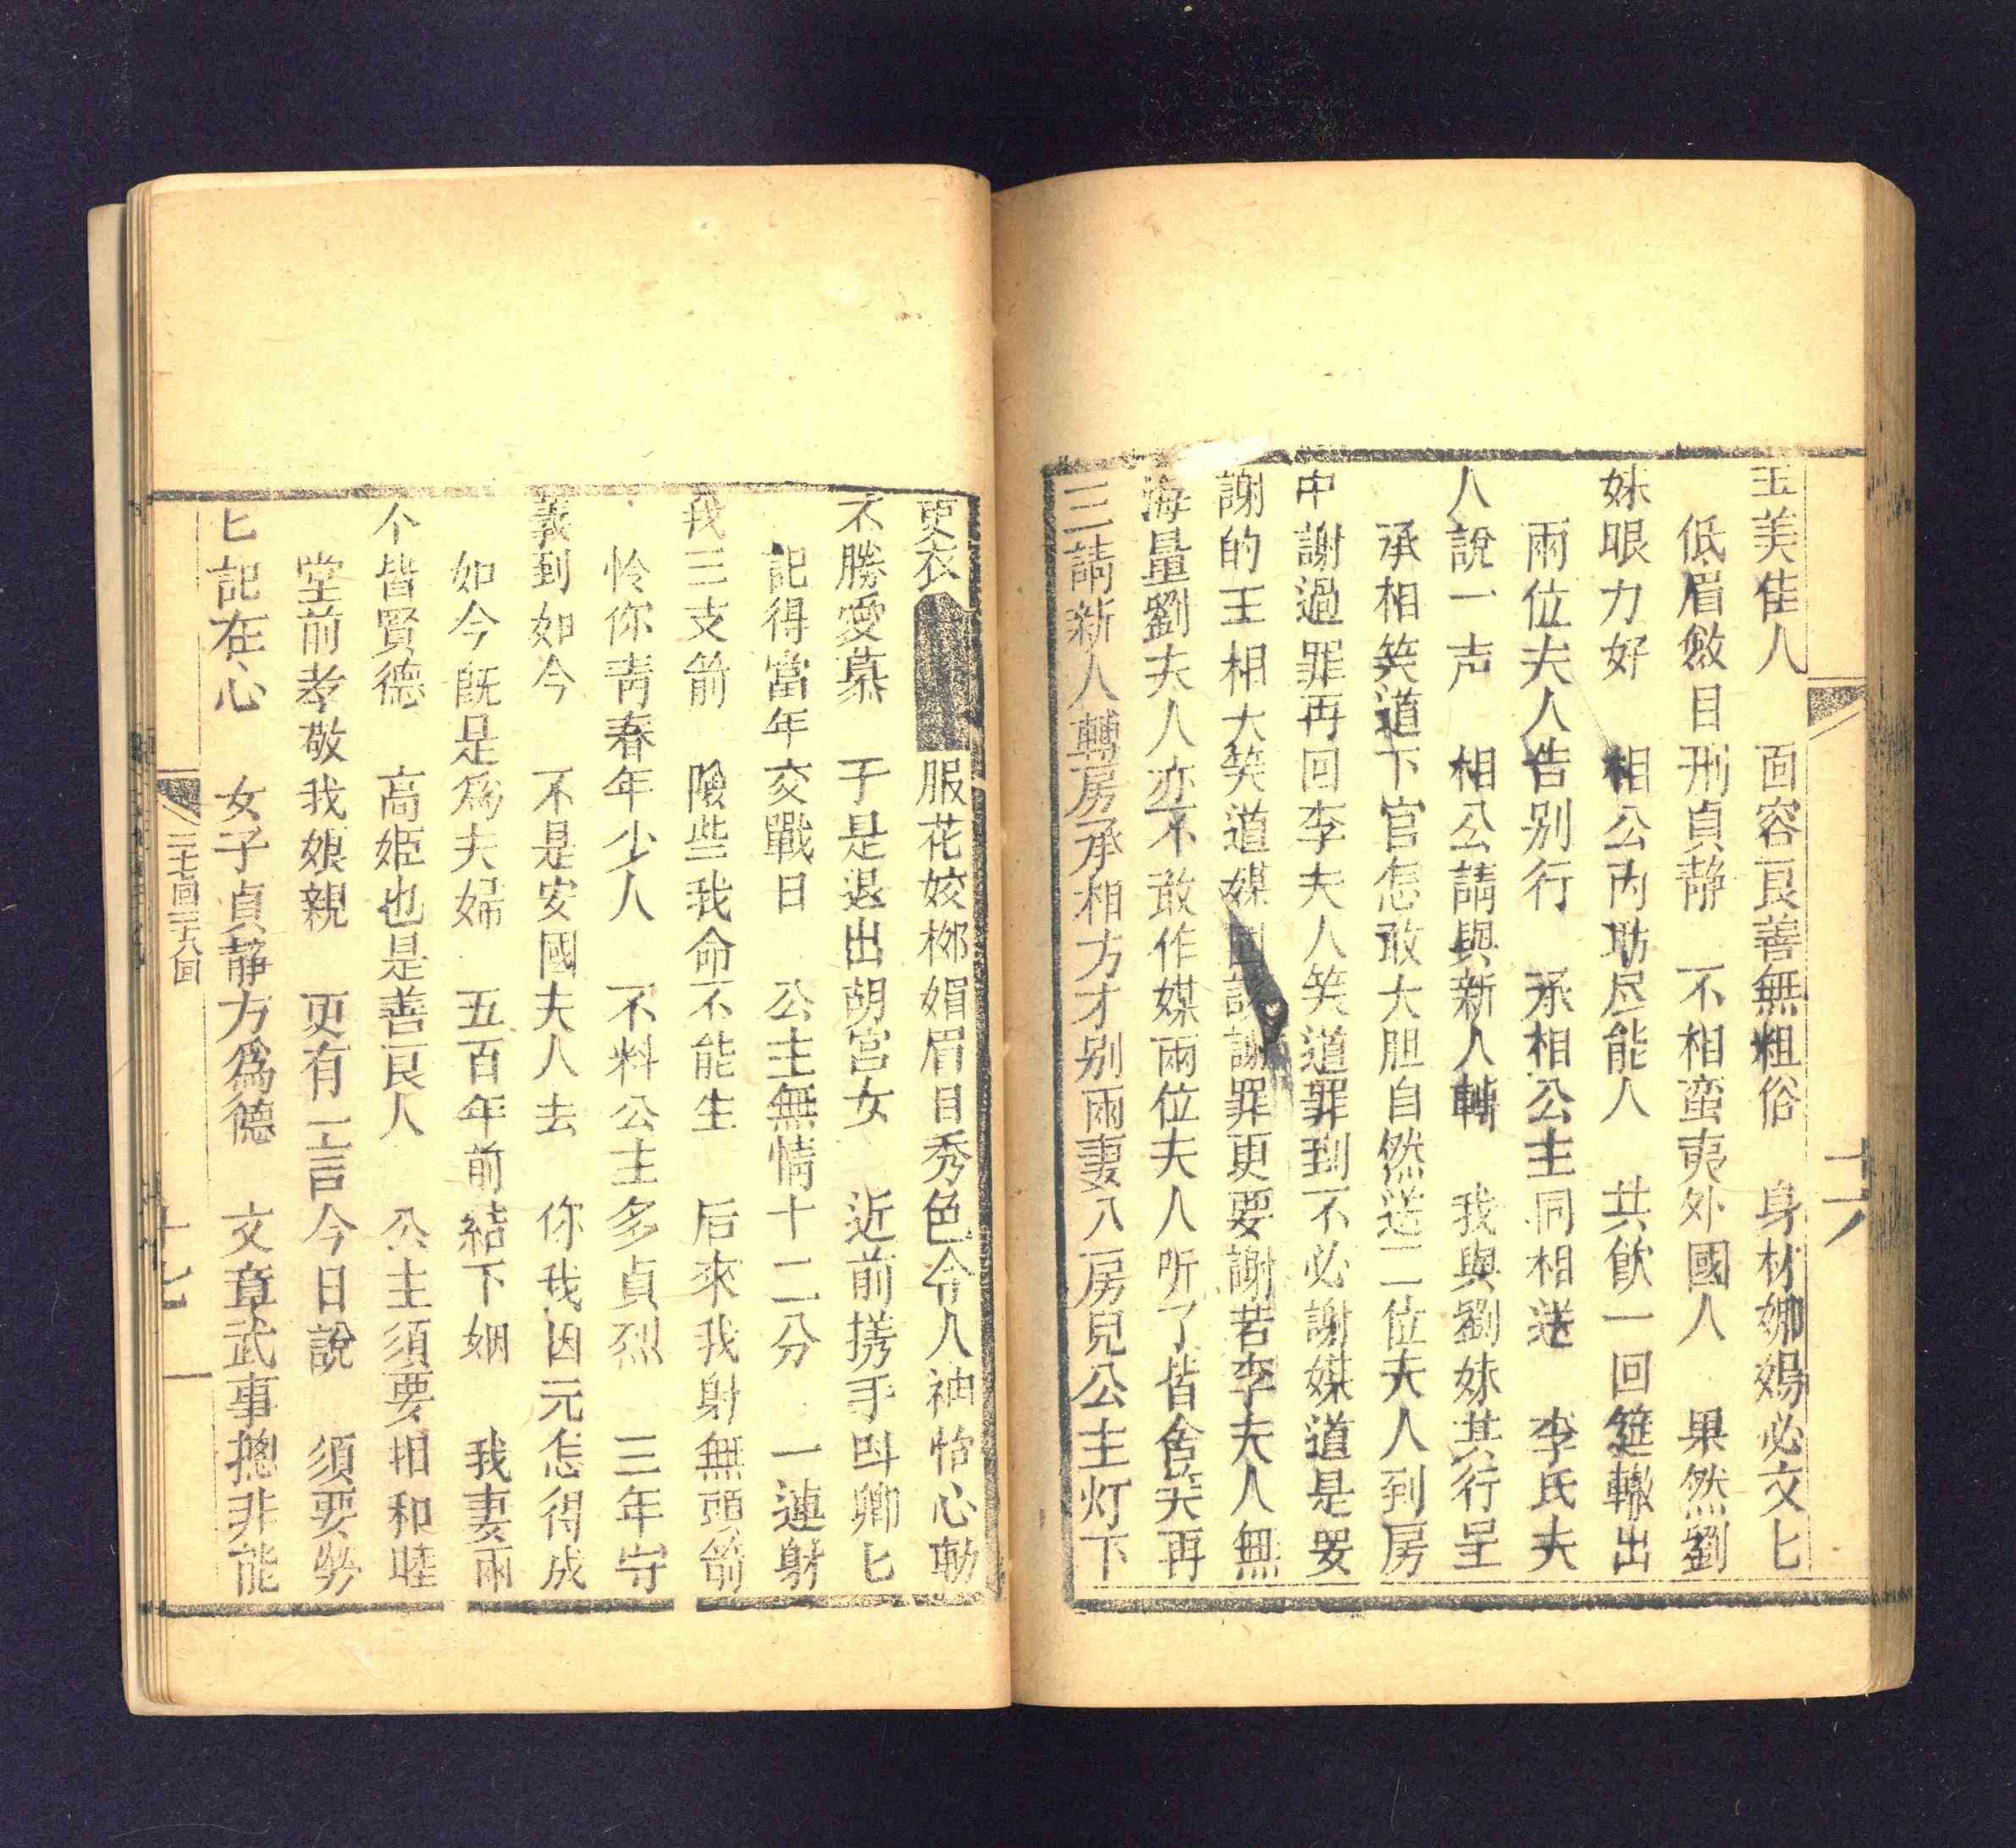 玉美佳人　面容良善無粗俗　身材娜㛹必文匕
低眉斂目刑貞靜　不相蛮夷外國人　果然劉
妹眼力好　相公內助尽能人　共飲一回筵轍出
兩位夫人告別行　承相公主同相送　李氏夫
人說一声　相公請與新人轉　我與劉妹共行呈
承相笑道下官怎敢大胆自然送二位夫人到房
中謝過罪再回李夫人笑道罪到不必謝媒道是要
謝的王相大笑道媒謝罪更要謝若李夫人無
海量劉夫人亦不敢作媒兩位夫人听了皆含笑再
三請新人轉房承相方才別兩妻入房見公主灯下
十六
更衣服花姣柳媚眉目秀色令人神怡心動
不勝愛慕　于是退出胡宮女　近前搓手叫卿匕
記得當年交戰日　公主無情十二分　一連射
我三支箭　險些我命不能生　后來我射無頭箭
怜你青春年少人　不料公主多貞烈　三年守
義到如今　不是安國夫人去　你我因元怎得成
如今既是為夫婦　五百年前結下姻　我妻兩
个皆賢德　高姬也是善良人　公主須要相和睦
堂前孝敬我娘親　更有一言今日說　須要勞
匕記在心　女子貞靜方為德　文章武事揔非能
二十七回二十八回
十七